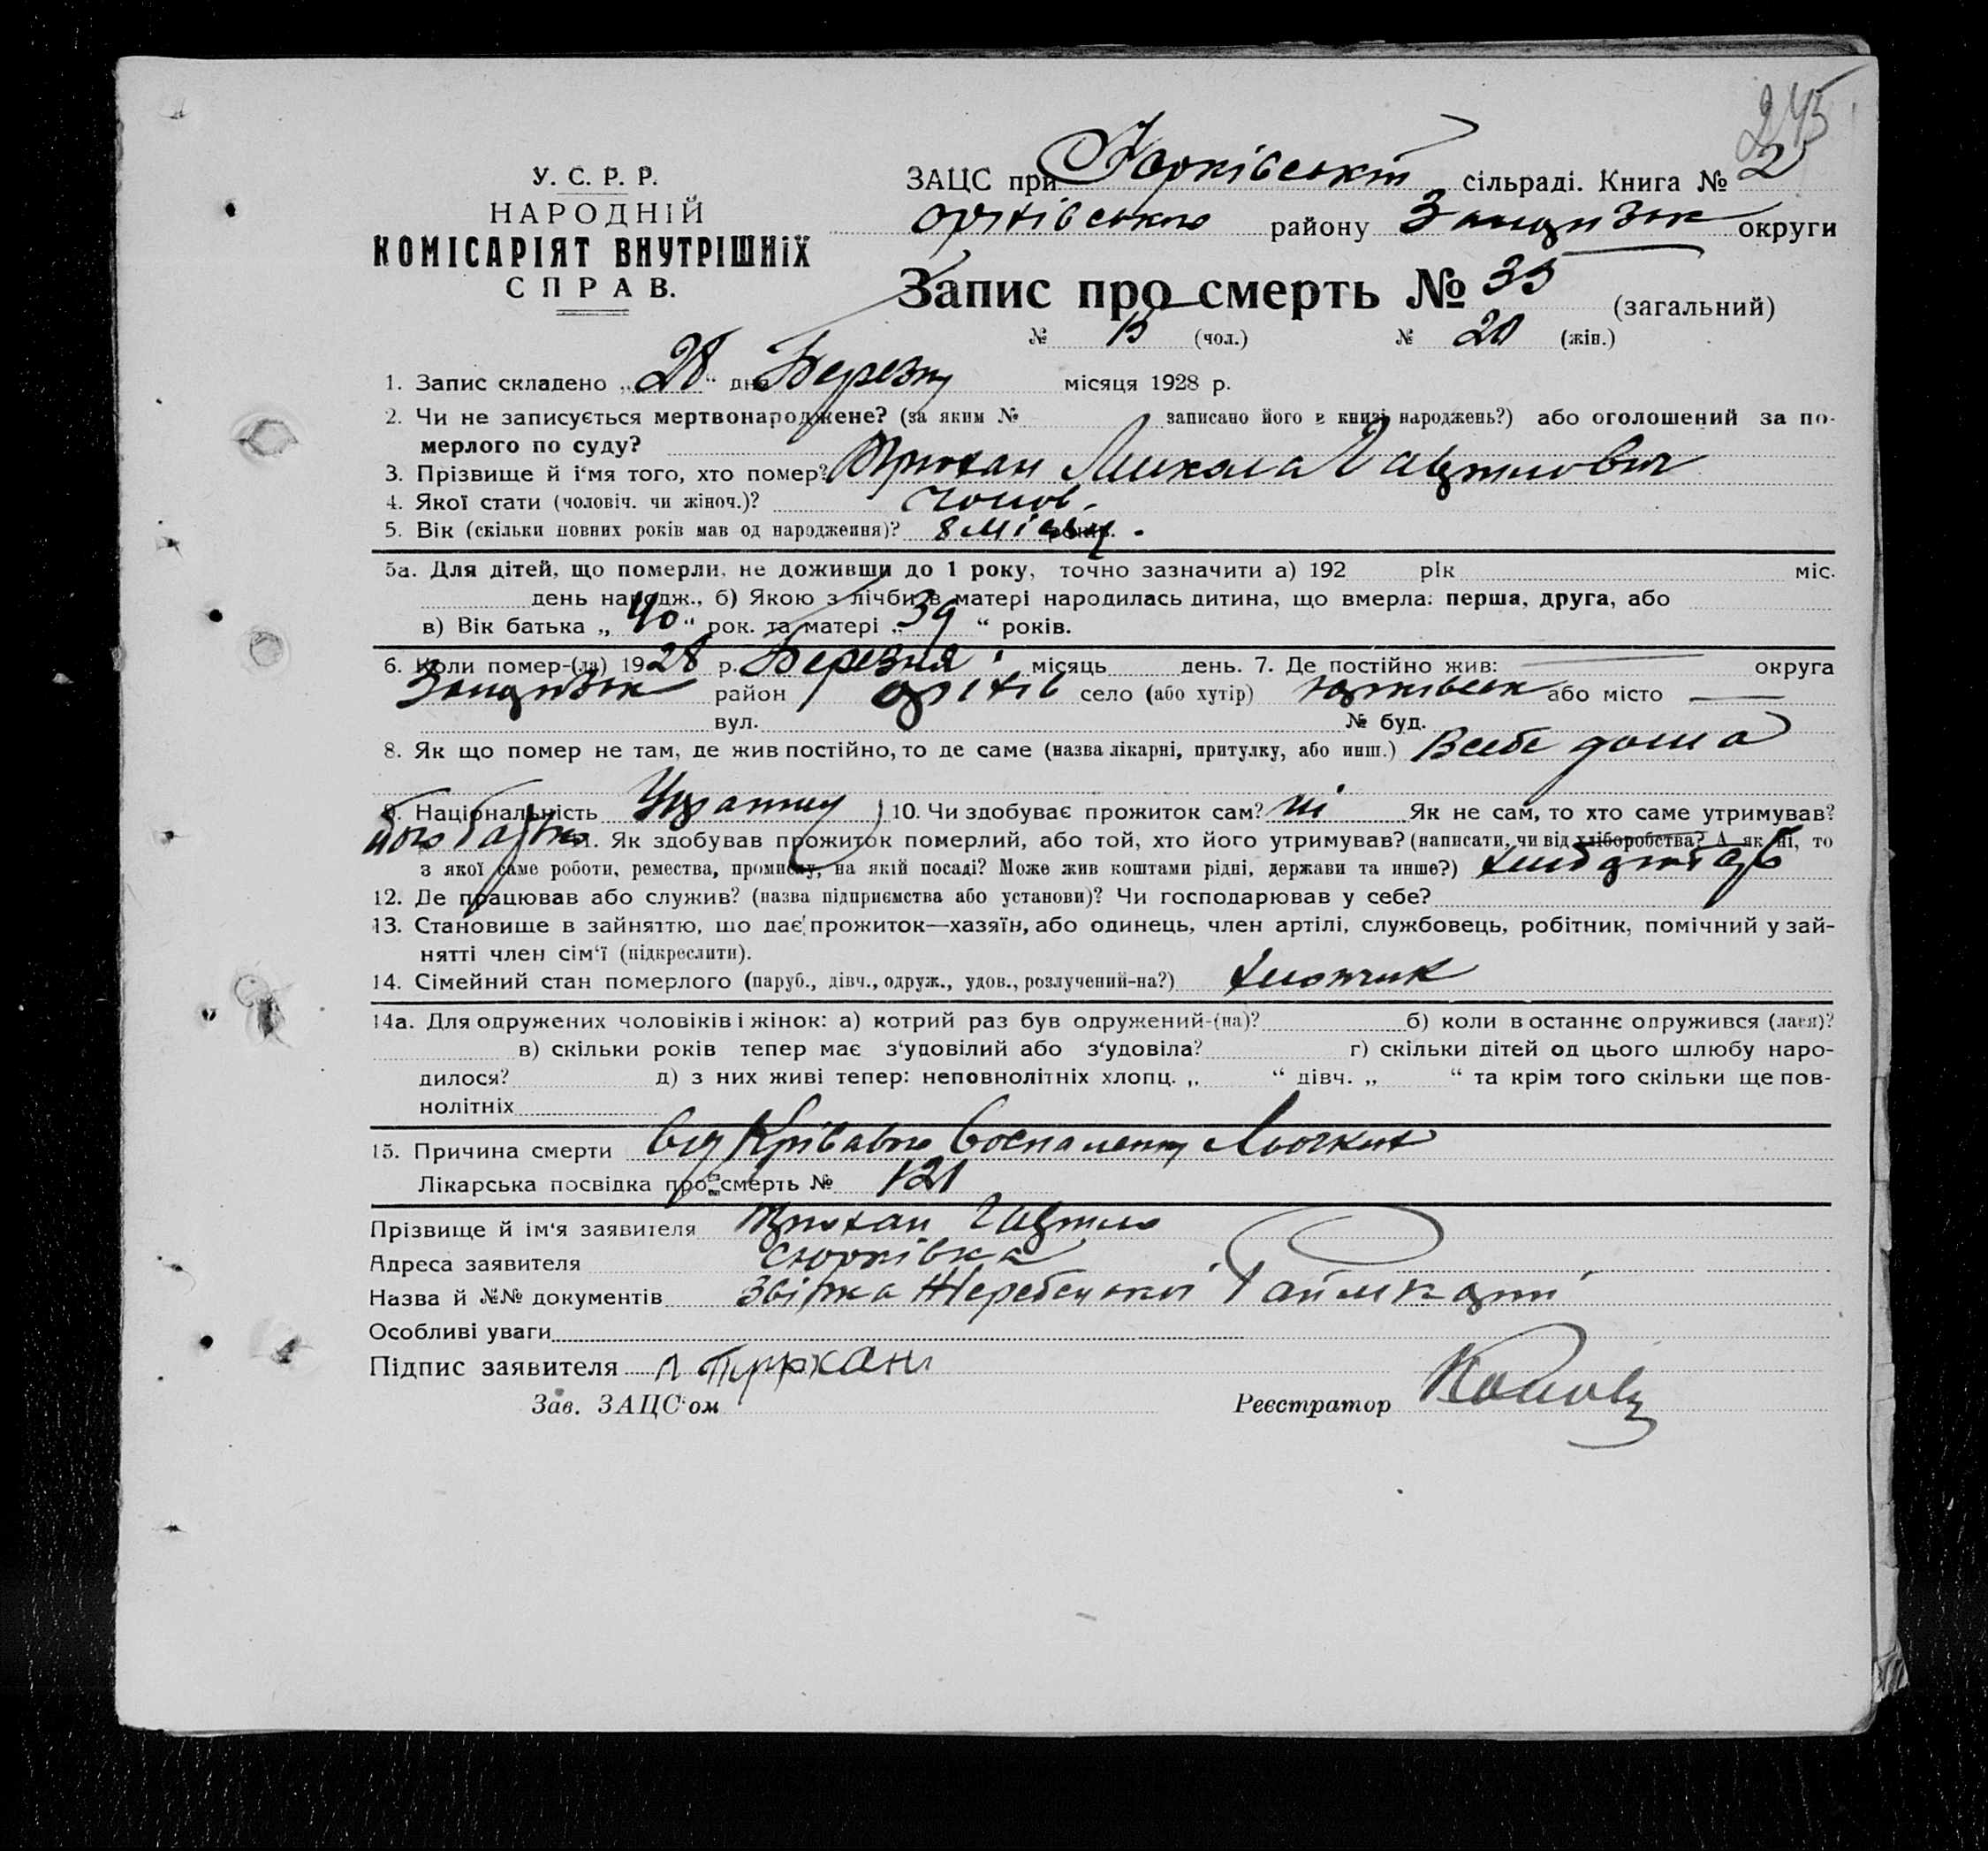 245
У. С. Р. Р.
НАРОДНІЙ
КОМІСАРІЯТ ВНУТРІШНІХ
СПРАВ.
ЗАЦС при Юрківській сільраді. Книга № 2
Оріхівського району Запоріжж округи
Запис про смерть № 35 (загальний)
№ 15 (чол.) № 20 (жін.)
1. Запис складено „ 28 “ дня Березня місяця 1928 р.
2. Чи не записується мертвонароджене? (за яким № записано його в книзі народжень?) або оголошений за по-
мерлого по суду?
3. Прізвище й і‘мя того, хто помер? Микола Гаврилович
4. Якої стати (чоловіч. чи жіноч.)? чолов.
5. Вік (скільки повних років мав од народження)? 8 місяц.
5а. Для дітей, що померли, не доживши до 1 року, точно зазначити а) 192 рік міс.
день народж., б) Якою з лічби в матері народилась дитина, що вмерла: перша, друга, або
в) Вік батька „ 40 “ рок. та матері „ 39 “ років.
6. Коли помер-(ла) 1928 р. Березня місяць день. 7. Де постійно жив: округа
район Оріхів село (або хутір) або місто —
вул. № буд.
8. Як що помер не там, де жив постійно, то де саме (назва лікарні, притулку, або инш.) Всебе дома
9. Національність 10. Чи здобуває прожиток сам? ні Як не сам, то хто саме утримував?
його батько 11. Як здобував прожиток померлий, або той, хто його утримував? (написати, чи від хліборобства? А як ні, то
з якої саме роботи, ремества, промислу, на якій посаді? Може жив коштами рідні, держави та инше?)
12. Де працював або служив? (назва підприємства або установи)? Чи господарював у себе?
13. Становище в зайняттю, що дає прожиток—хазяїн, або одинець, член артілі, службовець, робітник, помічний у зай-
нятті член сім‘ї (підкреслити).
14. Сімейний стан померлого (паруб., дівч., одруж., удов., розлучений-на?) хлопчик
14а. Для одружених чоловіків і жінок: а) котрий раз був одружений-(на)? б) коли в останнє одружився (лася)?
в) скільки років тепер має з‘удовілий або з‘удовіла? г) скільки дітей од цього шлюбу наро-
дилося? д) з них живі тепер: неповнолітніх хлопц. „ “ дівч. „ “ та крім того скільки ще пов-
нолітніх
15. Причина смерти Від Крівавого Воспаленя Льогких
Лікарська посвідка про смерть № 121
Прізвище й ім‘я заявителя Гаврило
Адреса заявителя с Юрківка
Назва й №№ документів Звістка Жеребецької Райлікарні
Особливі уваги
Підпис заявителя
Зав. ЗАЦС‘ом Реєстратор